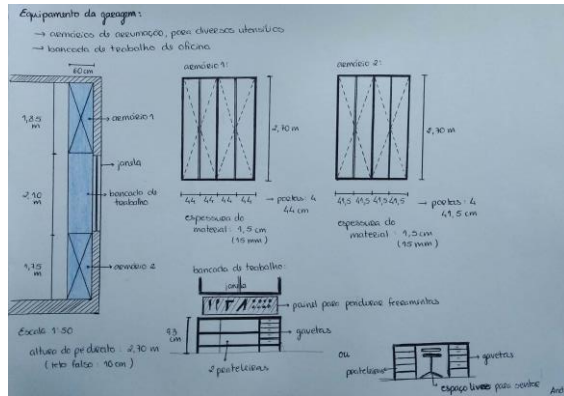 Equipamento da garagem:
→ armários de arrumação, para diversos utensílios
→ bancada de trabalho de oficina
60cm
1,85 m
2,10 m
1,75 m
armário 1
janela
bancada de trabalho
armário 2
Escala 1:50
altura do pé direito: 2,70 m
(teto falso: 10 cm)
armário 1:
2,70 m
44 44 44 44
→ portas: 4
44 cm
espessura do
material: 1,5 cm
(15 mm)
armário 2:
2,70 m
41,5 41,5 41,5 41,5
→ portas: 4
41,5 cm
espessura do
material: 1,5 cm
(15 mm)
bancada de trabalho:
janela
painel para pendurar ferramentas
93 cm
gavetas
2 prateleiras
ou
prateleiras
gavetas
espaço livre para sentar
And